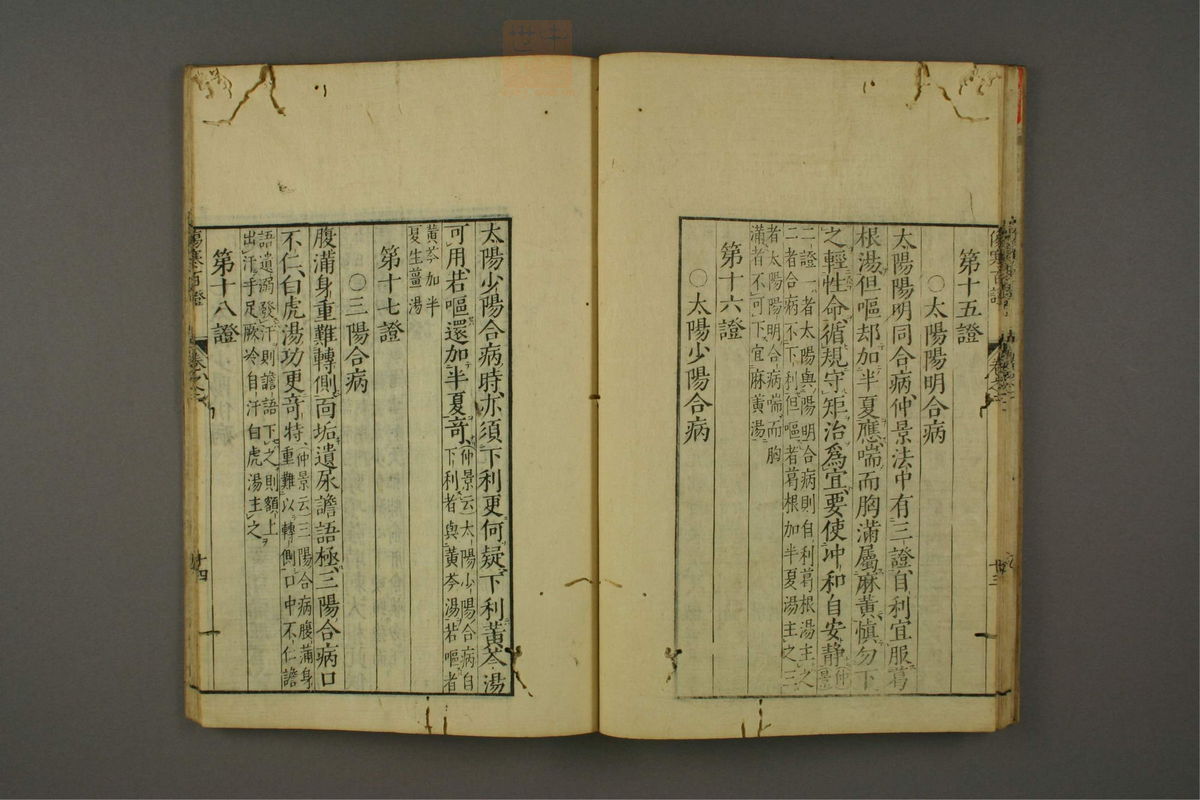 第十五證
○太陽陽明合病
太陽陽明同合病仲景法中有三證自利宜服葛
根湯但嘔却加半夏應喘而胸滿屬麻黃慎勿下
之輕性命循規守矩治爲宜要使冲和自安靜仲景
二證一者太陽與陽明合病則自利葛根湯主之
二者合病不下利但嘔者葛根加半夏湯主之三
者太陽陽明合病喘而胸
滿者不可下宜麻黃湯
第十六證
○太陽少陽合病
太陽少陽合病時亦須下利更何疑下利黃芩湯
可用若嘔還加半夏奇仲景云太陽少陽合病自
下利者與黃芩湯若嘔者
黃芩加半
夏生薑湯
第十七證
○三陽合病
腹滿身重難轉側面垢遺尿譫語極三陽合病口
不仁白虎湯功更奇特仲景云三陽合病腹滿身
重難以轉側口中不仁譫
語遺溺發汗則譫語下之則額上
出汗手足厥冷自汗白虎湯主之
第十八證
傷寒百證
十四